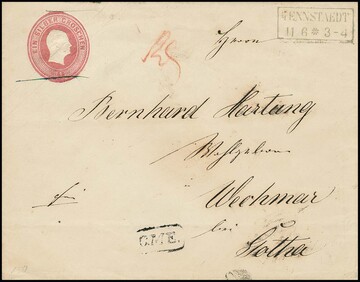 EIN SILBER GROSCHEN
TENNSTAEDT
11 6 * 3-4
Herrn
Bernhard Hartung
Wohlgeboren
Wechmar
bei
Gotha
C.M.E.